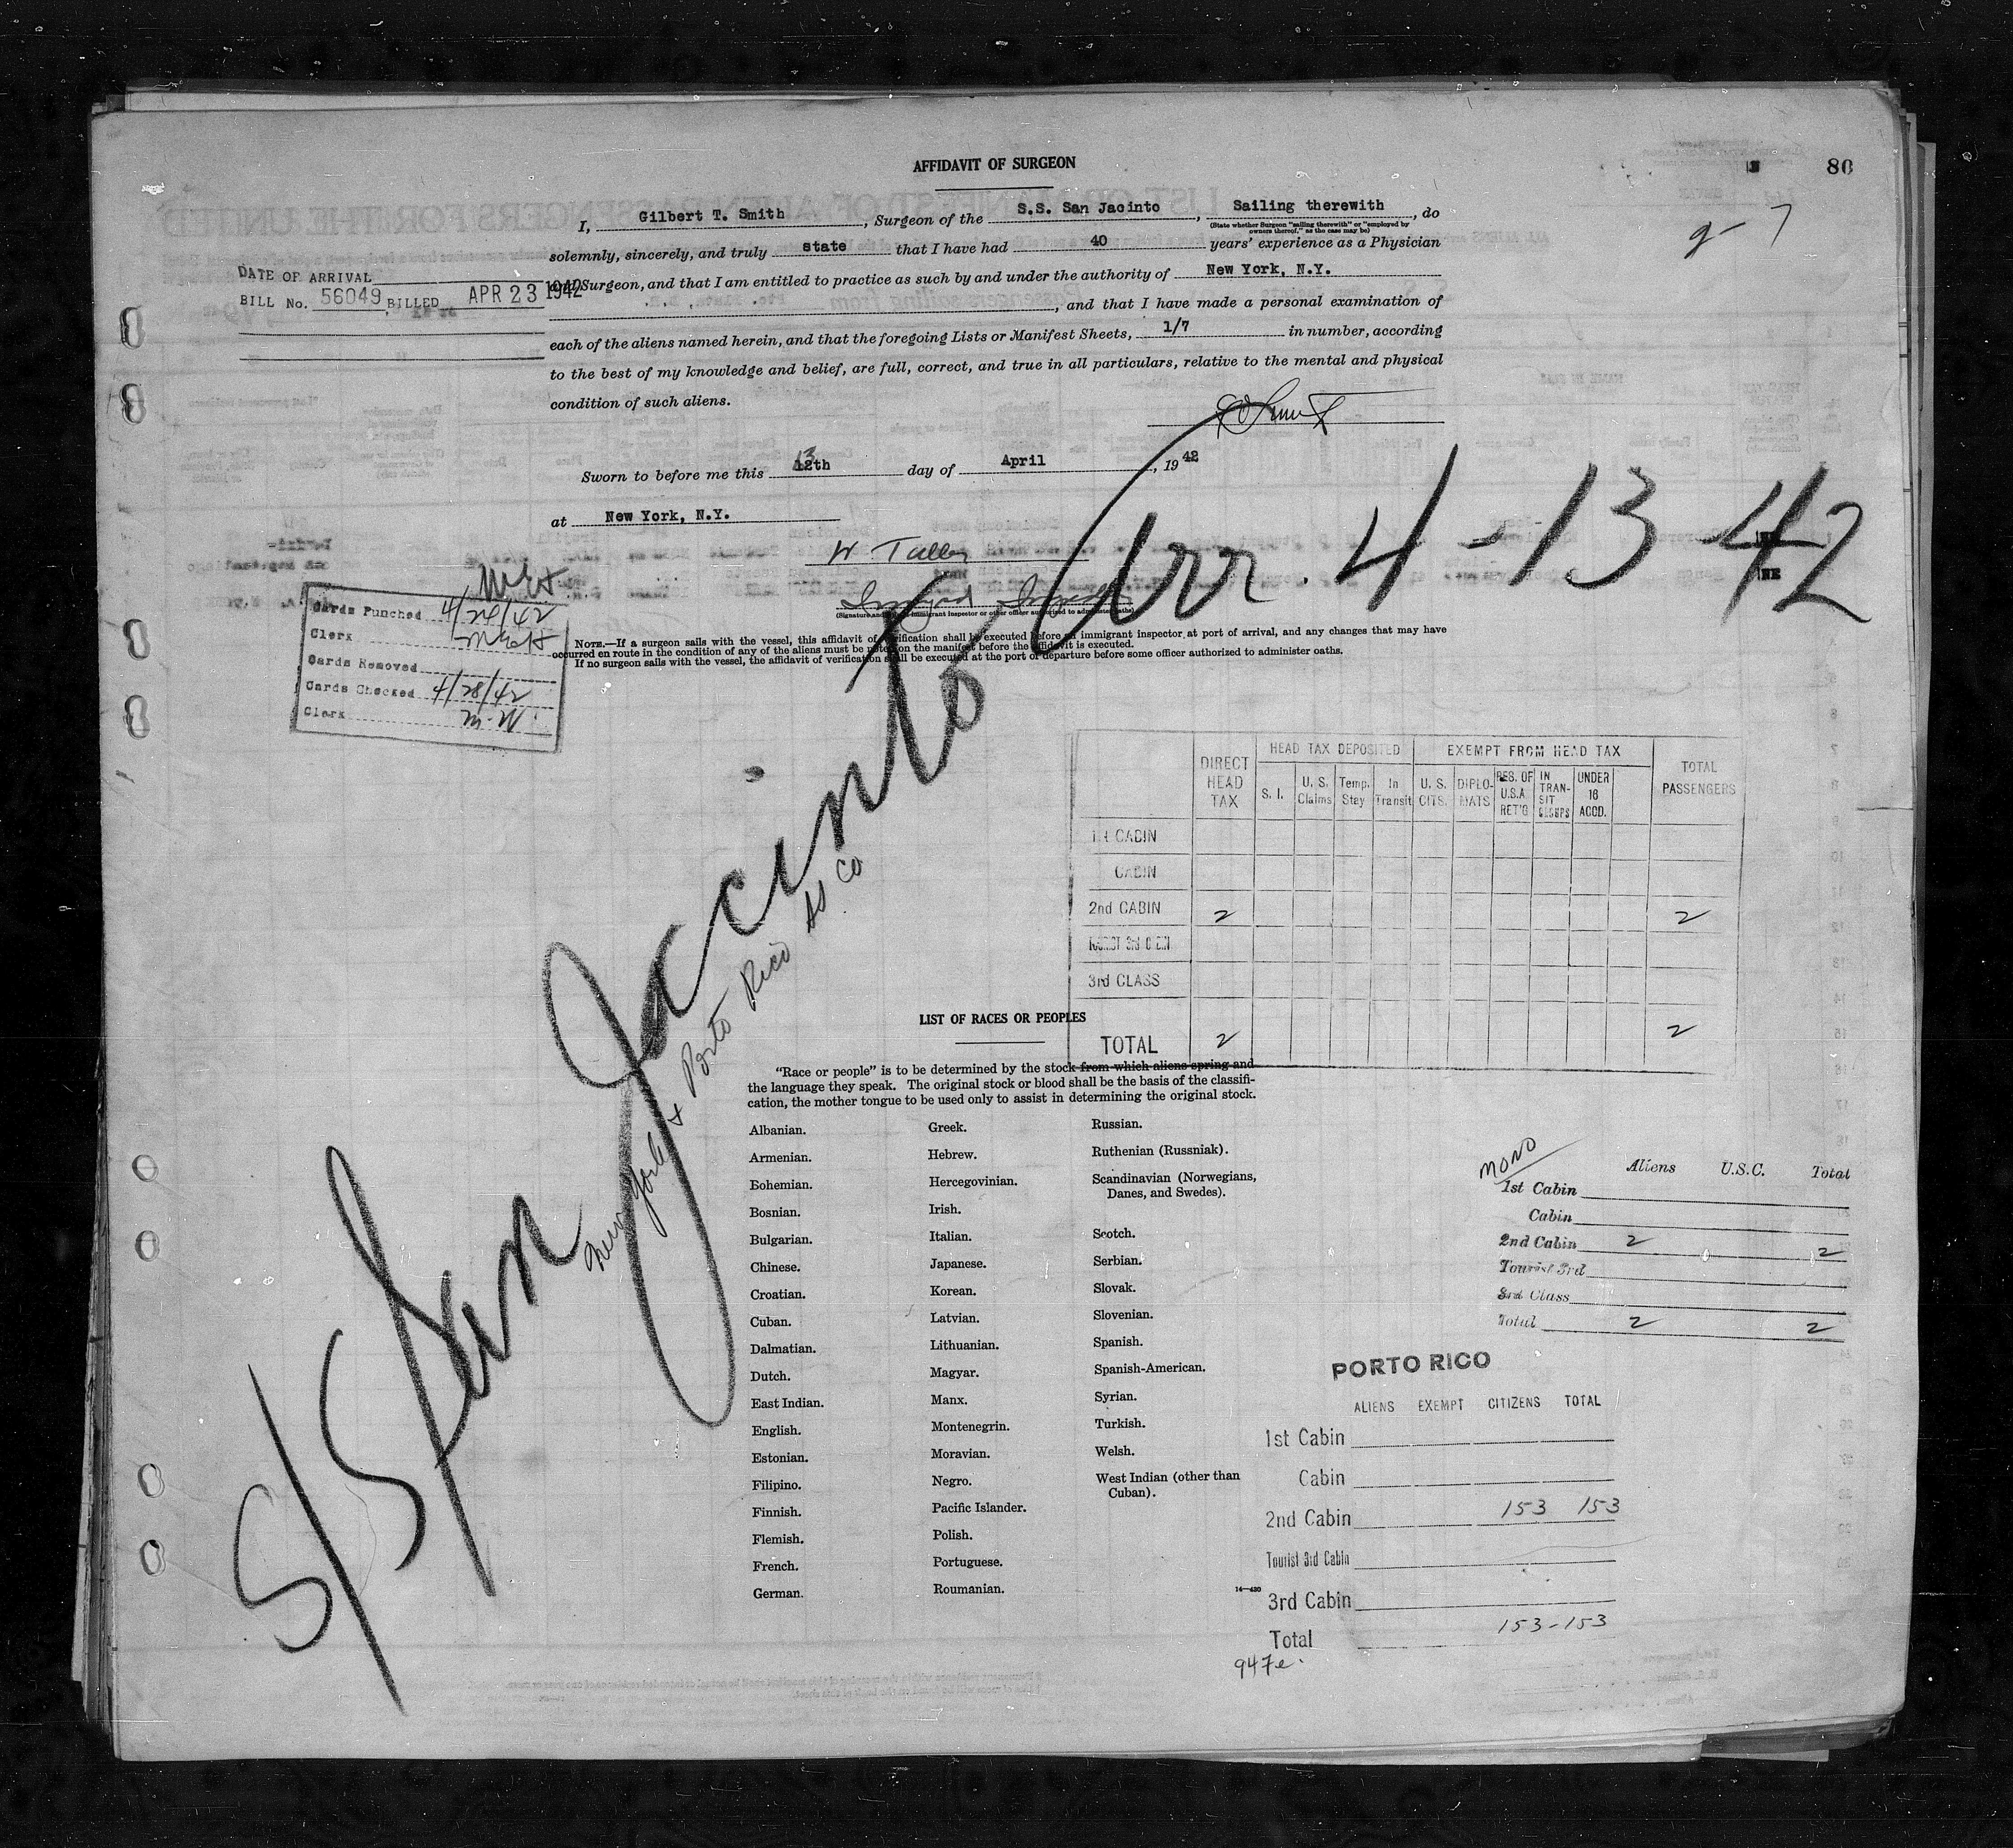 AFFIDAVIT OF SURGEON
80
g-7
I, Gilbert T. Smith, Surgeon of the S.S. San Jacinto, Sailing therewith, do
(State whether Surgeon "sailing therewith" or "employed by
owners thereof," as the case may be)
solemnly, sincerely, and truly state that I have had 40 years' experience as a Physician
and Surgeon, and that I am entitled to practice as such by and under the authority of New York, N.Y.
, and that I have made a personal examination of
each of the aliens named herein, and that the foregoing Lists or Manifest Sheets, 1/7 in number, according
to the best of my knowledge and belief, are full, correct, and true in all particulars, relative to the mental and physical
condition of such aliens.
DATE OF ARRIVAL
BILL No. 56049 BILLED APR 23 1942
Sworn to before me this 12th 13 day of April, 1942
at New York, N.Y.
W Talley
Immigrant Inspector
(Signature and title of immigrant inspector or other officer authorized to administer oaths)
Arr. 4-13-42
NOTE.—If a surgeon sails with the vessel, this affidavit of verification shall be executed before an immigrant inspector at port of arrival, and any changes that may have
occurred en route in the condition of any of the aliens must be noted on the manifest before the affidavit is executed.
If no surgeon sails with the vessel, the affidavit of verification shall be executed at the port of departure before some officer authorized to administer oaths.
Cards Punched 4/24/42
Clerk
Cards Removed
Cards Checked 4/28/42
Clerk M.W.
S/S San Jacinto
New York & Porto Rico SS Co
DIRECT HEAD TAX
HEAD TAX DEPOSITED
EXEMPT FROM HEAD TAX
TOTAL PASSENGERS
S. I.
U. S. Claims
Temp. Stay
In Transit
U. S. CITS.
DIPLO-MATS
RES. OF U.S.A. RET'G
IN TRAN-SIT GROUPS
UNDER 16 ACCD.
1st CABIN
CABIN
2nd CABIN 2 2
TOURIST 3rd CABIN
3rd CLASS
TOTAL 2 2
LIST OF RACES OR PEOPLES
"Race or people" is to be determined by the stock from which aliens spring and
the language they speak. The original stock or blood shall be the basis of the classifi-
cation, the mother tongue to be used only to assist in determining the original stock.
Albanian.
Armenian.
Bohemian.
Bosnian.
Bulgarian.
Chinese.
Croatian.
Cuban.
Dalmatian.
Dutch.
East Indian.
English.
Estonian.
Filipino.
Finnish.
Flemish.
French.
German.
Greek.
Hebrew.
Hercegovinian.
Irish.
Italian.
Japanese.
Korean.
Latvian.
Lithuanian.
Magyar.
Manx.
Montenegrin.
Moravian.
Negro.
Pacific Islander.
Polish.
Portuguese.
Roumanian.
Russian.
Ruthenian (Russniak).
Scandinavian (Norwegians,
Danes, and Swedes).
Scotch.
Serbian.
Slovak.
Slovenian.
Spanish.
Spanish-American.
Syrian.
Turkish.
Welsh.
West Indian (other than
Cuban).
14—430
MONO
Aliens U.S.C. Total
1st Cabin
Cabin
2nd Cabin 2 2
Tourist 3rd
3rd Class
Total 2 2
PORTO RICO
ALIENS EXEMPT CITIZENS TOTAL
1st Cabin
Cabin
2nd Cabin 153 153
Tourist 3rd Cabin
3rd Cabin
Total 153-153
947e.